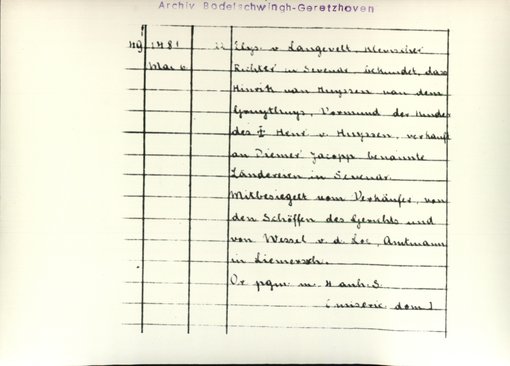 Archiv Bodelschwingh-Geretzhoven
49 1481 22 Elys. v. Langevelt, klevischer
Mai 6 Richter in Sevenar, bekundet, dass
Hinrik van Huyssen van dem
Gruythuys, Vormund der Kinder
des ‡ Henr. v. Huyssen, verkauft
an Diemer Jacopp benannte
Ländereien in Sevenar.
Mitbesiegelt vom Verkäufer, von
den Schöffen des Gerichts und
von Wessel v. d. Loe, Amtmann
in Liemersch.
Or. pgm. m. 4 anh. S.
(miseric. dom.)